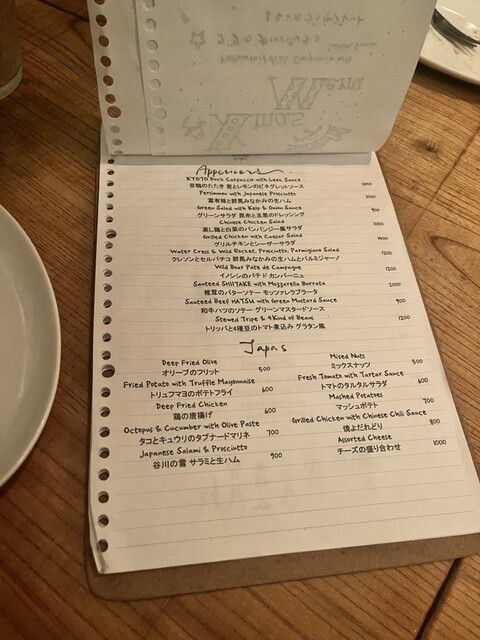 Menu
Appetizers
KYOTO Duck Carpaccio with Lees Sauce
京鴨のたたき 粕とレモンのビネグレットソース 1000
Persimmon with Japanese Prosciutto
富有柿と群馬みなかみの生ハム 1000
Green Salad with Kelp & Onion Sauce
グリーンサラダ 昆布と玉葱のドレッシング 900
Chinese Chicken Salad
蒸し鶏と白菜のバンバンジー風サラダ 1000
Grilled Chicken with Caesar Salad
グリルチキンとシーザーサラダ 1400
Water Cress & Wild Rocket, Prosciutto, Parmigiano Salad
クレソンとセルバチコ 群馬みなかみの生ハムとパルミジャーノ 1200
Wild Boar Pate de Campagne
イノシシのパテ ド カンパーニュ 1200
Sauteed SHIITAKE with Mozzarella Burrata
椎茸のバターソテー モッツァレラブラータ 2000
Sauteed Beef HATSU with Green Mustard Sauce
和牛ハツのソテー グリーンマスタードソース 900
Stewed Tripe & 4Kind of Beans
トリッパと4種豆のトマト煮込み グラタン風 1200
Tapas
Deep Fried Olive
オリーブのフリット 500
Fried Potato with Truffle Mayonnaise
トリュフマヨのポテトフライ 600
Deep Fried Chicken
鶏の唐揚げ 600
Octopus & Cucumber with Olive Paste
タコとキュウリのタプナードマリネ 700
Japanese Salami & Prosciutto
谷川の雪 サラミと生ハム 900
Mixed Nuts
ミックスナッツ 500
Fresh Tomato with Tartar Sauce
トマトのタルタルサラダ 600
Mashed Potatoes
マッシュポテト 700
Grilled Chicken with Chinese Chili Sauce
焼よだれどり 800
Assorted Cheese
チーズの盛り合わせ 1000